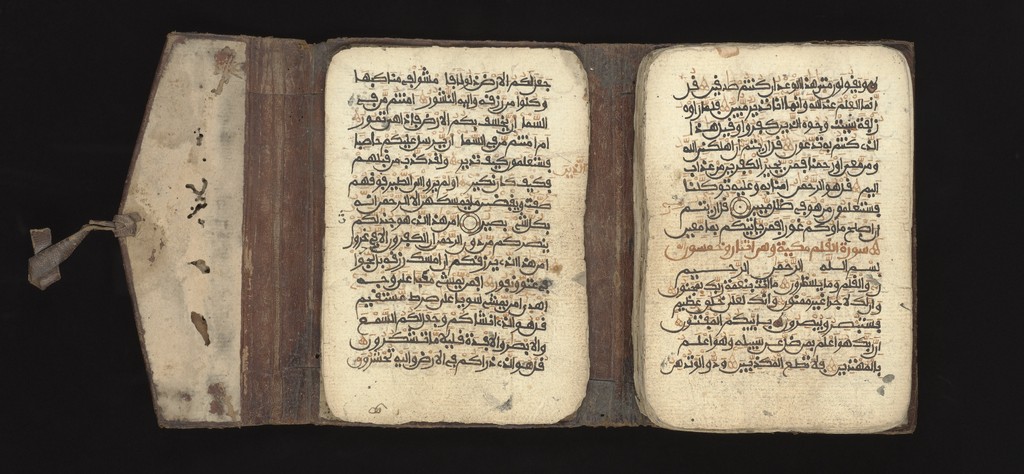 جعل لكم الارض ذلولا فامشوا في مناكبها
وكلوا من رزقه واليه النشور امنتم من في
السما ان يخسف بكم الارض فاذا هي تمور
ام امنتم من في السما ان يرسل عليكم حاصبا
فستعلمون كيف نذير ولقد كذب من قبلهم
الذين
فكيف كان نكير اولم يروا الى الطير فوقهم
صفت ويقبضن ما يمسكهن الا الرحمن انه
بكل شي بصير امن هذا الذي هو جند لكم
ينصركم من دون الرحمن ان الكفرون الا في غرور
امن هذا الذي يرزقكم ان امسك رزقه بل لجوا
في عتو ونفور افمن يمشي مكبا على وجهه
اهدى امن يمشي سويا على صرط مستقيم
قل هو الذي انشاكم وجعل لكم السمع
والابصر والافدة قليلا ما تشكرون
قل هو الذي ذراكم في الارض واليه تحشرون
ويقولون متى هذا الوعد ان كنتم صدقين قل
انما العلم عند الله وانما انا نذير مبين فلما راوه
زلفة سيئت وجوه الذين كفروا وقيل هذا
الذي كنتم به تدعون قل اريتم ان اهلكني الله
ومن معي او رحمنا فمن يجير الكفرين من عذاب
اليم قل هو الرحمن امنا به وعليه توكلنا
فستعلمون من هو في ضلل مبين قل اريتم
ان اصبح ماوكم غورا فمن ياتيكم بما معين
سورة القلم مكية وهي اثنان وخمسون
بسم الله الرحمن الرحيم
ن والقلم وما يسطرون ما انت بنعمة ربك بمجنون
وان لك لاجرا غير ممنون وانك لعلى خلق عظيم
فستبصر ويبصرون باييكم المفتون
ان ربك هو اعلم بمن ضل عن سبيله وهو اعلم
بالمهتدين فلا تطع المكذبين ودوا لو تدهن